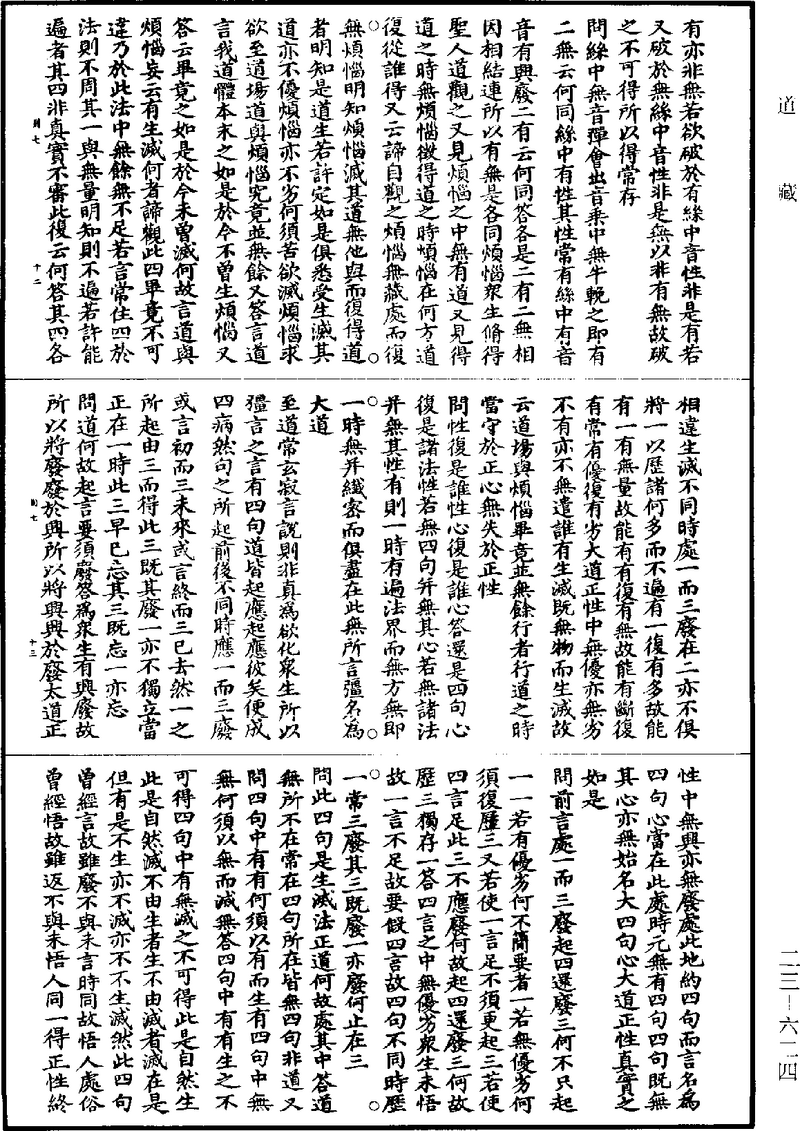 道藏
二三—六一四
有亦非無若欲破於有絲中音性非是有若
又破於無絲中音性非是無以非有無故破
之不可得所以得常存
問絲中無音彈會出音乘中無牛輓之即有
二無云何同絲中有性其性常有絲中有音
音有興廢二有云何同答各是二有二無相
因相結連所以有無是各同煩惱衆生脩得
聖人道觀之又見煩惱之中無有道又見得
道之時無煩惱徵得道之時煩惱在何方道
復從誰得又云諦自觀之煩惱無藏處而復
無煩惱明知煩惱滅其道無他與而復得道
者明知是道生若許定如是俱悉受生滅其
道亦不優煩惱亦不劣何須苦欲滅煩惱求
欲至道場道與煩惱究竟並無餘又答言道
言我道體本末之如是於今不曾生煩惱又
答云畢竟之如是於今未曾滅何故言道與
煩惱妄云有生滅何者諦觀此四畢竟不可
違乃於此法中無餘無不足若言常住四於
法則不周其一與無量明知則不遍若許能
遍者其四非真實不審此復云何答其四各
相違生滅不同時處一而三廢在二亦不俱
將一以歷諸何多而不遍有一復有多故能
有一有無量故能有有復有無故能有斷復
有常有優復有劣大道正性中無優亦無劣
不有亦不無遣誰有生滅既無物而生滅故
云道場與煩惱畢竟並無餘行者行道之時
當守於正心無失於正性
問性復是誰性心復是誰心答還是四句心
復是諸法性若無四句并無其心若無諸法
并無其性有則一時有遍法界而無方無即
一時無并纖密而俱盡在此無所言彊名為
大道
至道常玄寂言說則非真為欲化衆生所以
彊言之言有四句道皆起應起應彼矣便成
四病然句之所起前後不同時應一而三廢
或言初而三未來或言終而三已去然一之
所起由三而得此三既其廢一亦不獨立當
正在一時此三早已忘其三既忘一亦忘
問道何故起言要須廢答為衆生有興廢故
所以將廢廢於興所以將興興於廢大道正
性中無興亦無廢處此地約四句而言名為
四句心當在此處時元無有四句四句既無
其心亦無始名大四句心大道正性真實之
如是
問前言處一而三廢起四還廢三何不只起
一一若有優劣何不簡要者一若無優劣何
須復歷三又若使一言足不須更起三若使
四言足此三不應廢何故起四還廢三何故
歷三獨存一答四言之中無優劣衆生未悟
故一言不足故要假四言故四句不同時歷
一常三廢其三既廢一亦廢何止在三
問此四句是生滅法正道何故處其中答道
無所不在常在四句所在皆無四句非道又
問四句中有有何須以有而生有四句中無
無何須以無而滅無答四句中有有生之不
可得四句中有無滅之不可得此是自然生
此是自然滅不由生者生不由滅者滅在是
但有是不生亦不滅亦不不生滅然此四句
曾經言故雖廢不與未言時同故悟人處俗
曾經悟故雖返不與未悟人同一得正性終